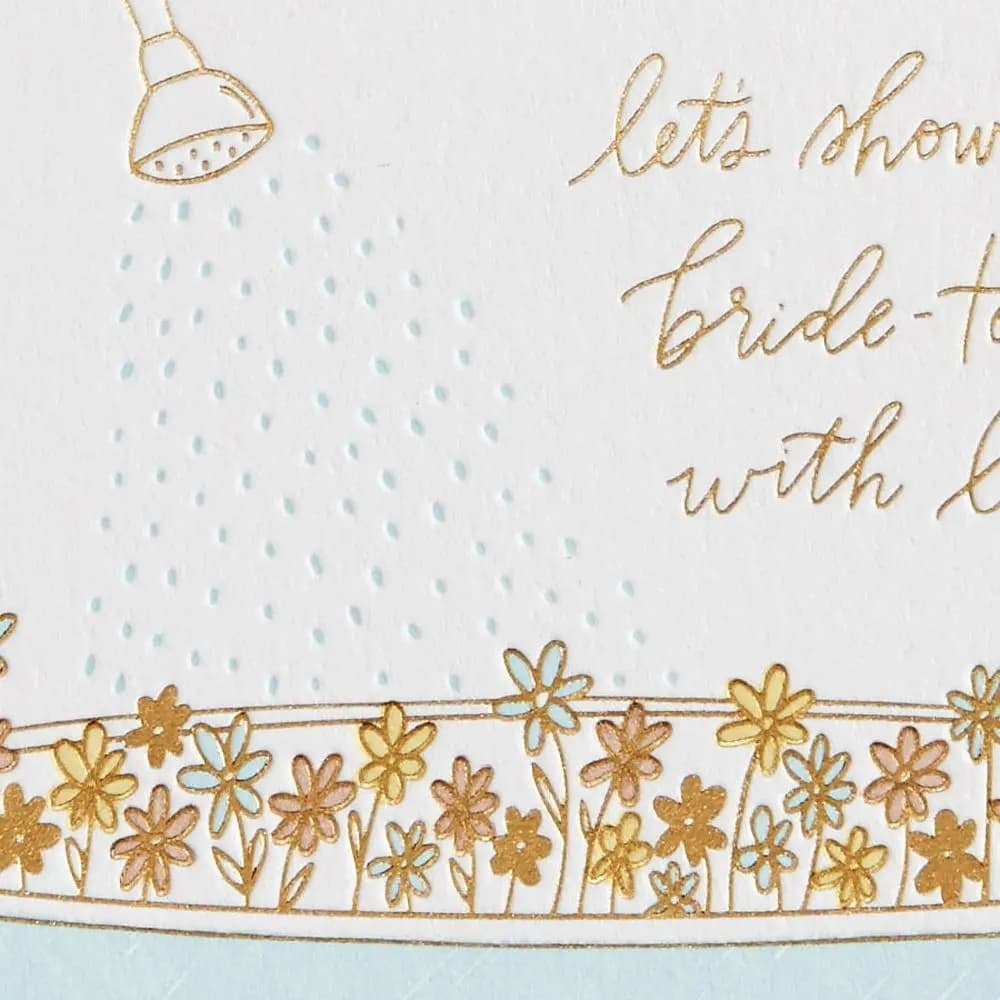 let's show
bride-to
with